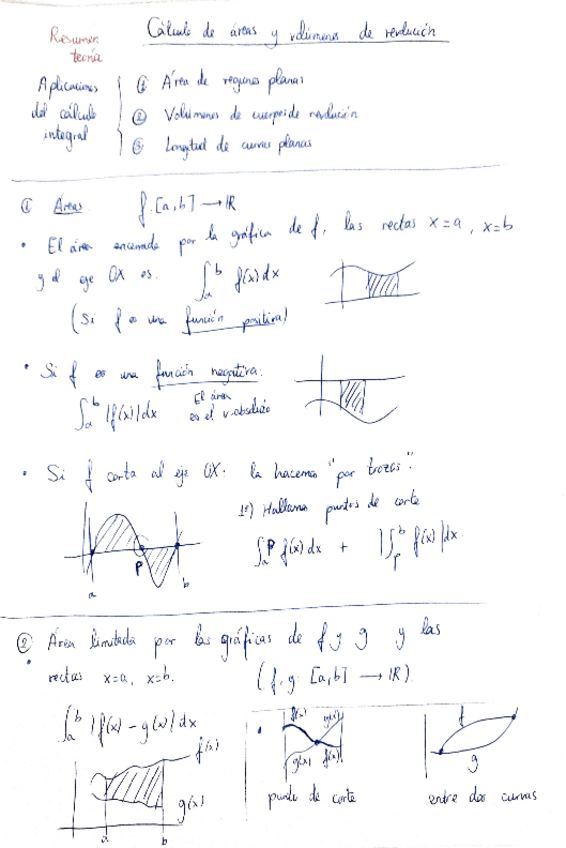 Cálculo de áreas y volúmenes de revolución
Resumen teoría
Aplicaciones del cálculo integral
① Área de regiones planas
② Volúmenes de cuerpos de revolución
③ Longitud de curvas planas
① Áreas f: [a,b] → ℝ
• El área encerrada por la gráfica de f, las rectas x=a, x=b
y el eje OX es. ∫ₐᵇ f(x)dx
(Si f es una función positiva)
• Si f es una función negativa:
∫ₐᵇ |f(x)|dx El área es el v. absoluto
• Si f corta al eje OX: la hacemos "por trozos".
1º) Hallamos puntos de corte
∫ₐᴾ f(x)dx + |∫ₚᵇ f(x)|dx.
P
a b
② Área limitada por las gráficas de f y g y las
rectas x=a, x=b. (f, g: [a,b] → ℝ)
∫ₐᵇ |f(x) - g(x)|dx
f(x)
g(x)
a b
• f(x) g(x)
g(x) f(x)
punto de corte
f
g
entre dos curvas